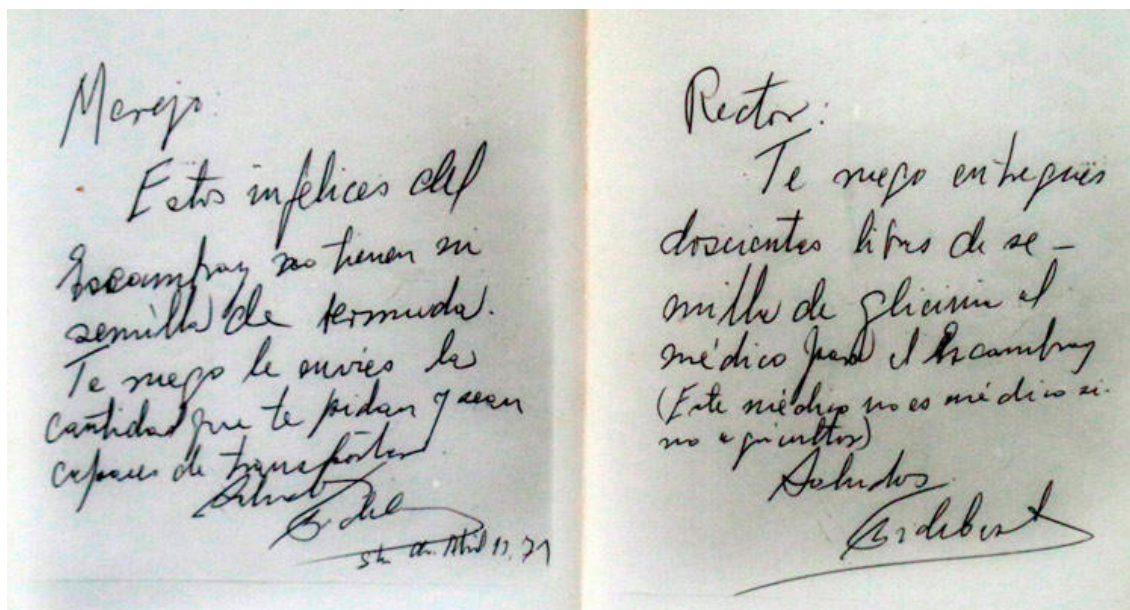 Estos infelices del
Escambray no tienen ni
semilla de bermuda.
Te ruego le envíes la
cantidad que te pidan y sean
capaces de transportar
Fidel
Abril 71
Rector:
Te ruego entregues
doscientas libras de se-
milla de glicinia al
médico para el Escambray
(Este médico no es médico si-
no agricultor)
Saludos